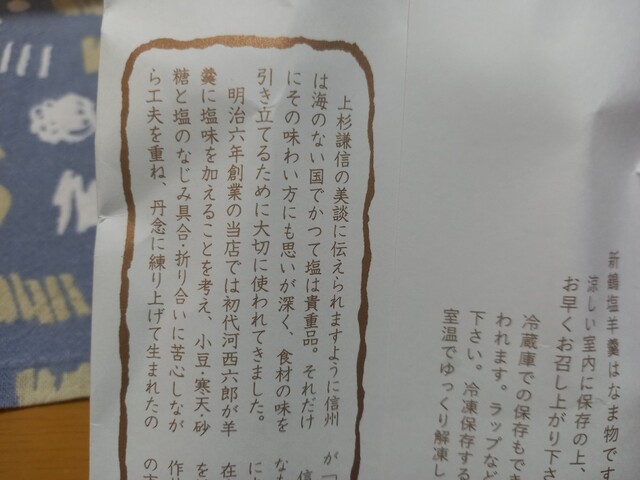 新鶴塩羊羹はなま物です
涼しい室内に保存の上、
お早くお召し上がり下さ
冷蔵庫での保存もでき
われます。ラップなど
下さい。冷凍保存する
室温でゆっくり解凍し
上杉謙信の美談に伝えられますように信州
は海のない国でかつて塩は貴重品。それだけ
にその味わい方にも思いが深く、食材の味を
引き立てるために大切に使われてきました。
明治六年創業の当店では初代河西六郎が羊
羹に塩味を加えることを考え、小豆・寒天・砂
糖と塩のなじみ具合・折り合いに苦心しなが
ら工夫を重ね、丹念に練り上げて生まれたの
が「
信
な
に
在
を
作
の